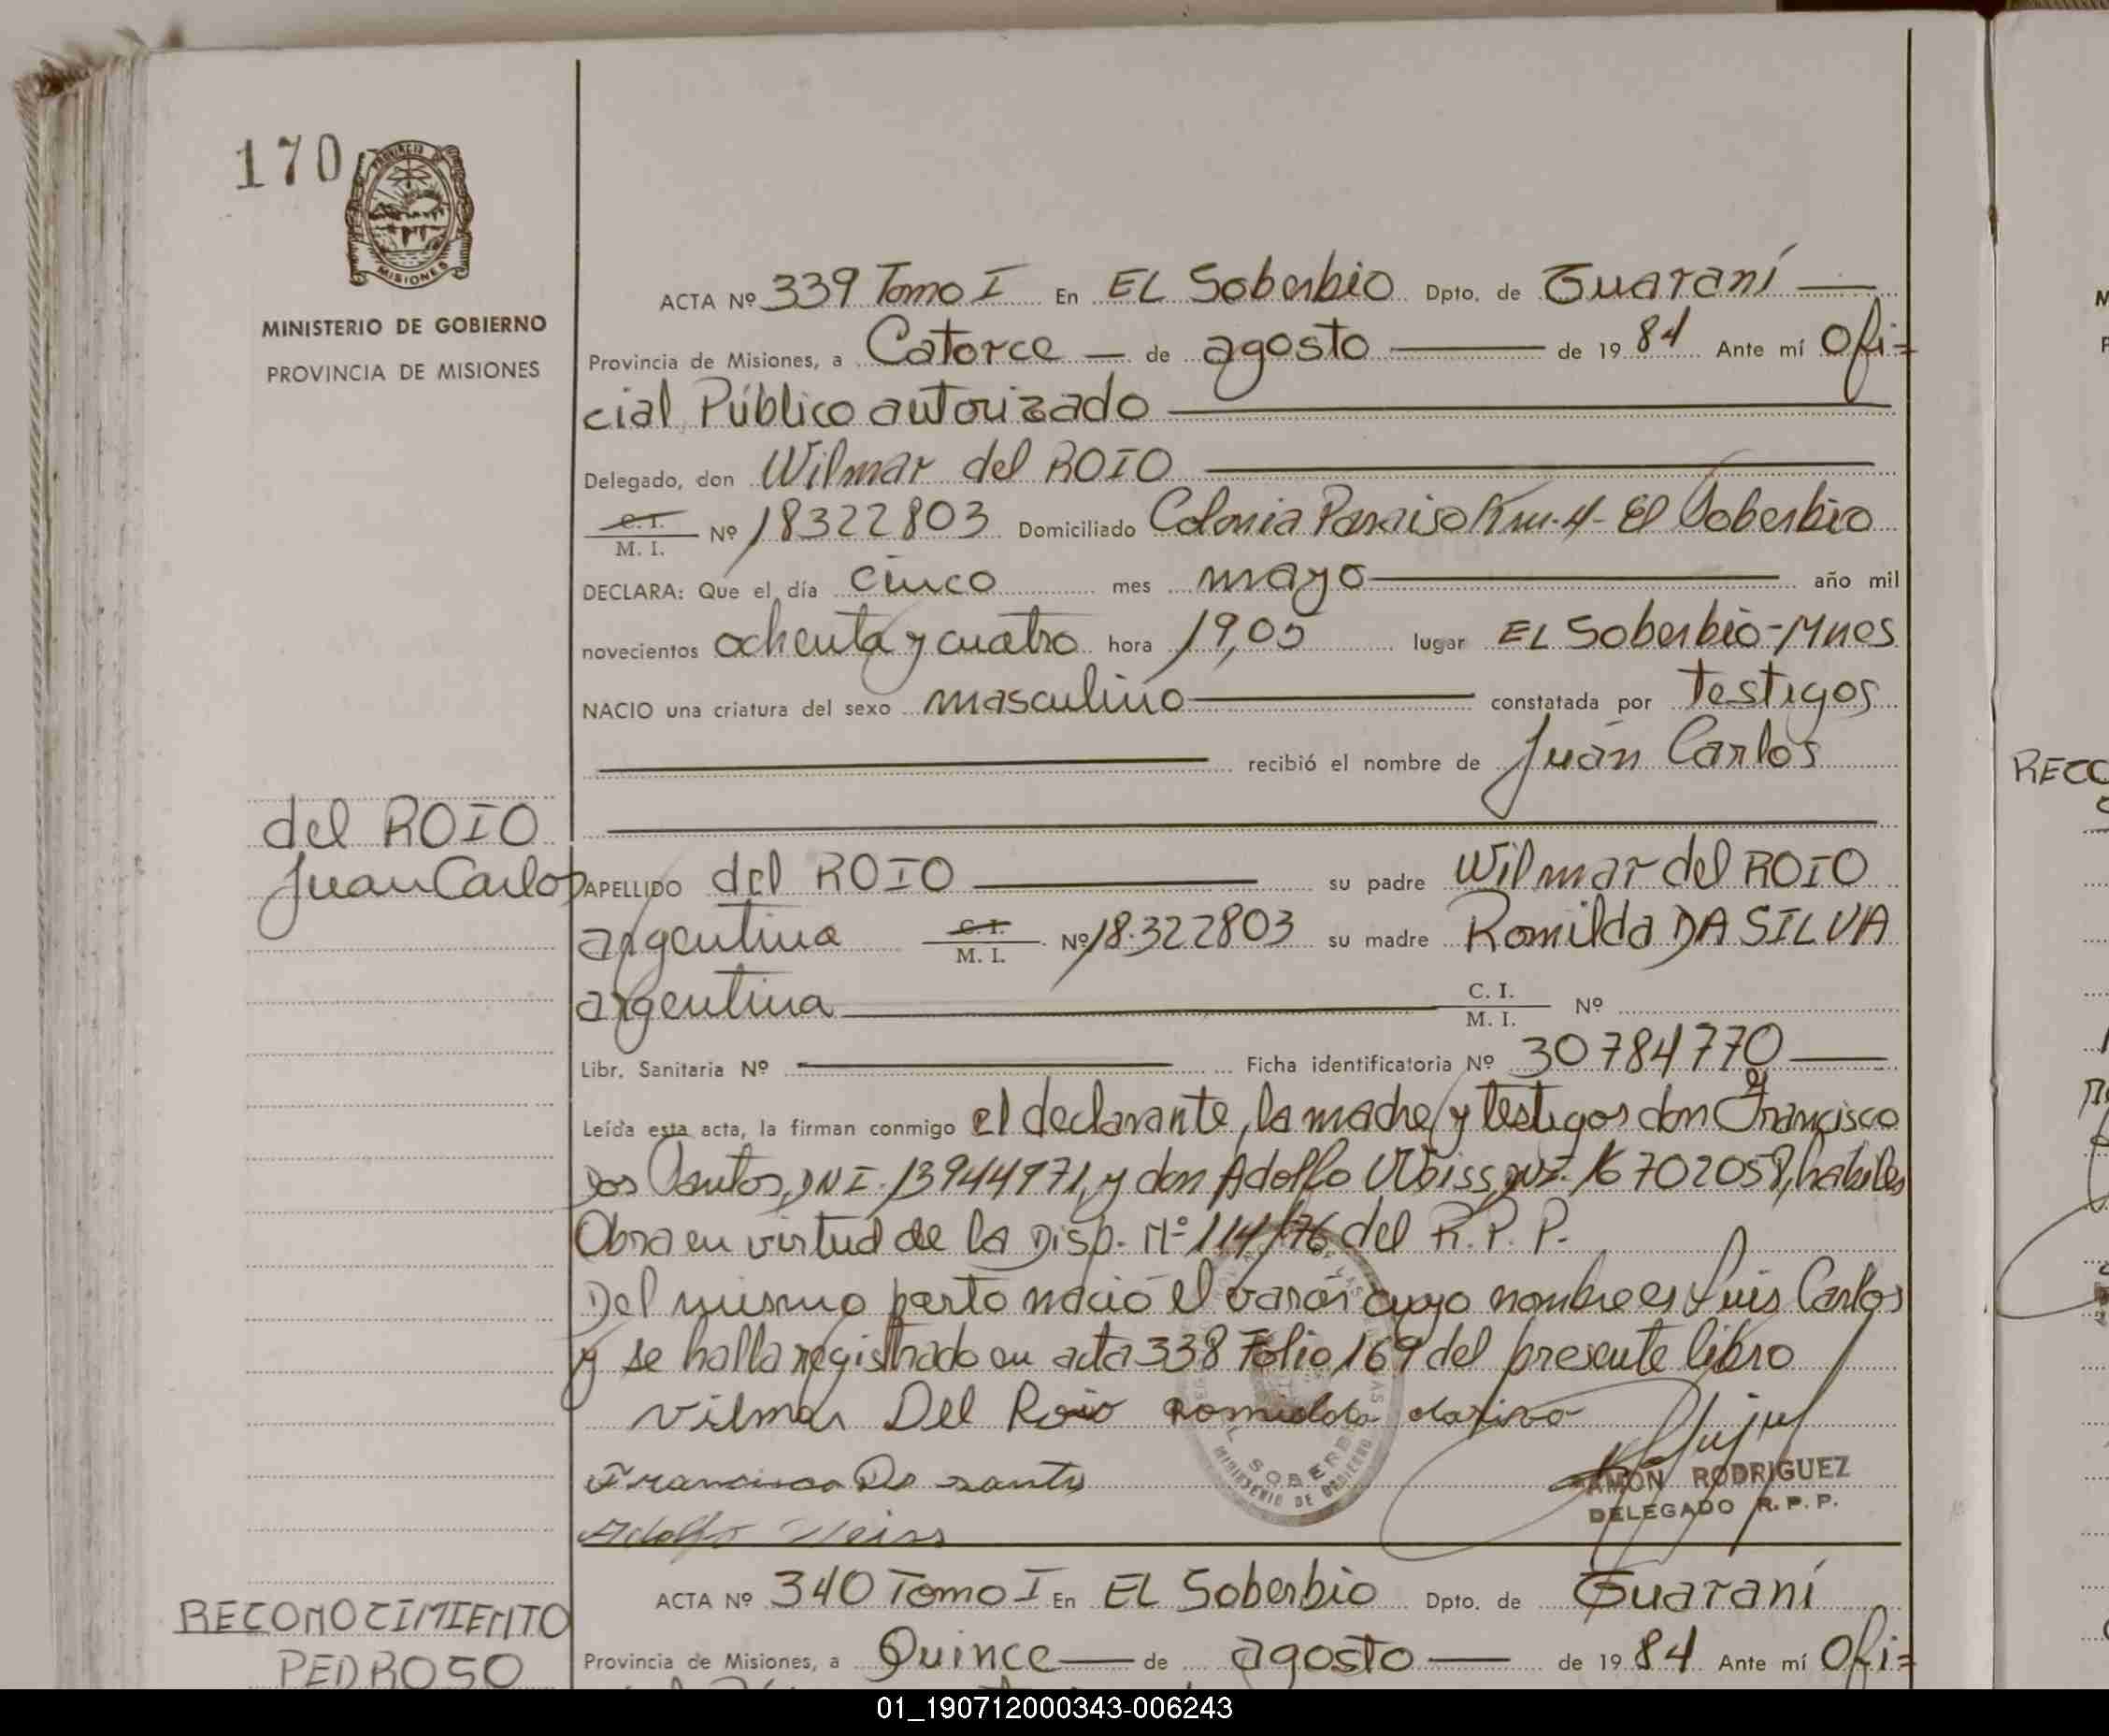 170
PROVINCIA DE
MISIONES
MINISTERIO DE GOBIERNO
PROVINCIA DE MISIONES
ACTA Nº 339 Tomo I En EL Soberbio Dpto. de Guaraní
Provincia de Misiones, a Catorce de agosto de 1984 Ante mí Ofi=
cial Público autorizado
Delegado, don Wilmar del ROIO
C. I. / M. I. Nº 18322803 Domiciliado Colonia Paraiso Km.4- El Soberbio
DECLARA: Que el día cinco mes mayo año mil
novecientos ochenta y cuatro hora 19,05 lugar EL Soberbio-Mnes
NACIO una criatura del sexo masculino constatada por testigos
recibió el nombre de Juan Carlos
del ROIO
Juan Carlos
APELLIDO del ROIO su padre Wilmar del ROIO
argentina C. I. / M. I. Nº 18.322803 su madre Romilda DA SILVA
argentina C. I. / M. I. Nº
Libr. Sanitaria Nº Ficha identificatoria Nº 30784770
Leída esta acta, la firman conmigo el declarante, la madre y testigos don Francisco
Dos Santos, DNI. 13944971, y don Adolfo Weiss, DNI. 16702058, habiles
Obra en virtud de la Disp. Nº 114/76 del R. P. P.
Del mismo parto nació el varón cuyo nombre es Luis Carlos
y se halla registrado en acta 338 Folio 169 del presente libro
Vilmar Del Roio Romilda
Francisco Do santo
Adolfo Weiss
L SOBERB
MINISTERIO DE GOBIERNO
RAMÓN RODRIGUEZ
DELEGADO R. P. P.
ACTA Nº 340 Tomo I En EL Soberbio Dpto. de Guaraní
RECONOCIMIENTO
PEDROSO
Provincia de Misiones, a Quince de agosto de 1984 Ante mí Ofi=
RECO
01_190712000343-006243